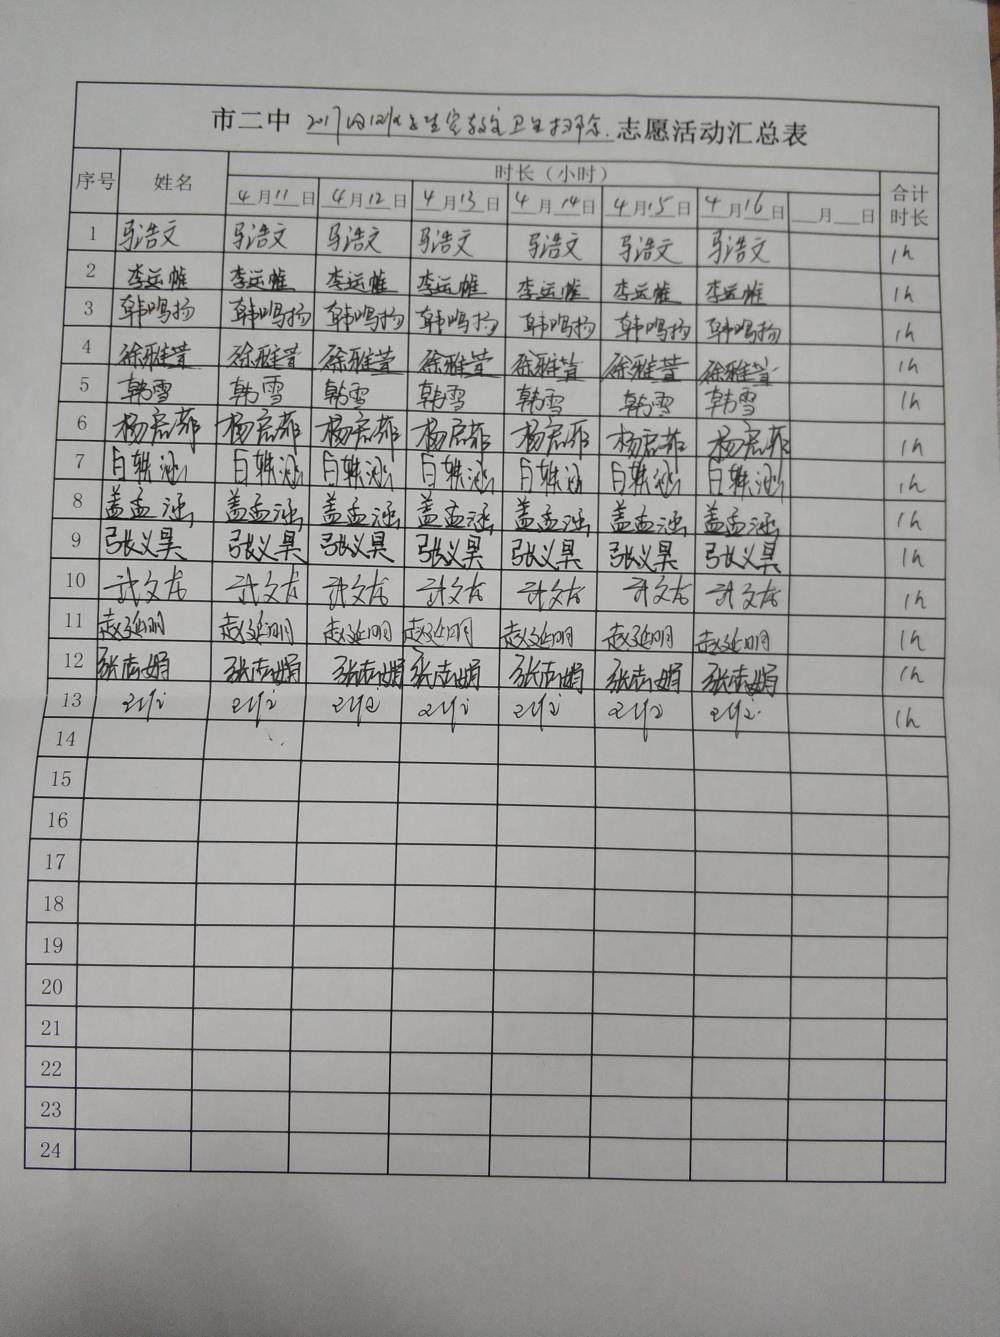 市二中 2017 卫生扫除 志愿活动汇总表
序号 姓名 时长（小时） 合计时长
4月11日 4月12日 4月13日 4月14日 4月15日 4月16日 __月__日
1 马浩文 马浩文 马浩文 马浩文 马浩文 马浩文 马浩文 1h
2 李运帷 李运帷 李运帷 李运帷 李运帷 李运帷 李运帷 1h
3 韩鸣扬 韩鸣扬 韩鸣扬 韩鸣扬 韩鸣扬 韩鸣扬 韩鸣扬 1h
4 徐雅萱 徐雅萱 徐雅萱 徐雅萱 徐雅萱 徐雅萱 徐雅萱 1h
5 韩雪 韩雪 韩雪 韩雪 韩雪 韩雪 韩雪 1h
6 1h
7 白轶涵 白轶涵 白轶涵 白轶涵 白轶涵 白轶涵 白轶涵 1h
8 盖孟涵 盖孟涵 盖孟涵 盖孟涵 盖孟涵 盖孟涵 盖孟涵 1h
9 张义昊 张义昊 张义昊 张义昊 张义昊 张义昊 张义昊 1h
10 武文龙 武文龙 武文龙 武文龙 武文龙 武文龙 武文龙 1h
11 赵延明 赵延明 赵延明 赵延明 赵延明 赵延明 赵延明 1h
12 张志娟 张志娟 张志娟 张志娟 张志娟 张志娟 张志娟 1h
13 1h
14
15
16
17
18
19
20
21
22
23
24